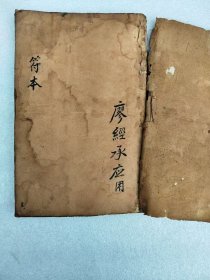 符本
廖經承应用